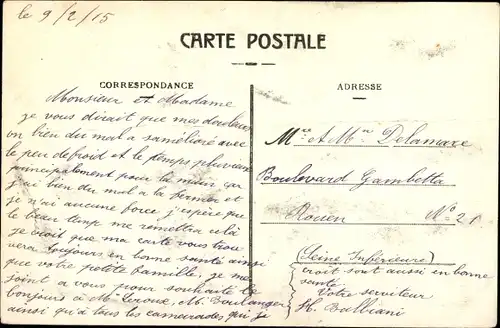 le 9/2/15
CARTE POSTALE
CORRESPONDANCE
ADRESSE
Monsieur et Madame
je vous dirait que mes douleurs
on bien du mal a saméliore avec
le peu de froid et le temps pluvieux
principalement pour la main ça
j'ai bien du mal a la fermer et
je n'ai aucune force j'espère que
le beau temp me remettra cela
je croit que ma carte vous trou
vera toujours en bonne santé ainsi
que votre petite famille, je me
joint a vous pour souhaité le
bonjours à M. Leroux, M. Boulanger
ainsi qu'à tous les camarades qui je
Mr & Mme Delamare
Boulevard Gambetta
Rouen No 21
(Seine Inférieure)
croit sont aussi en bonne
santé
Votre serviteur